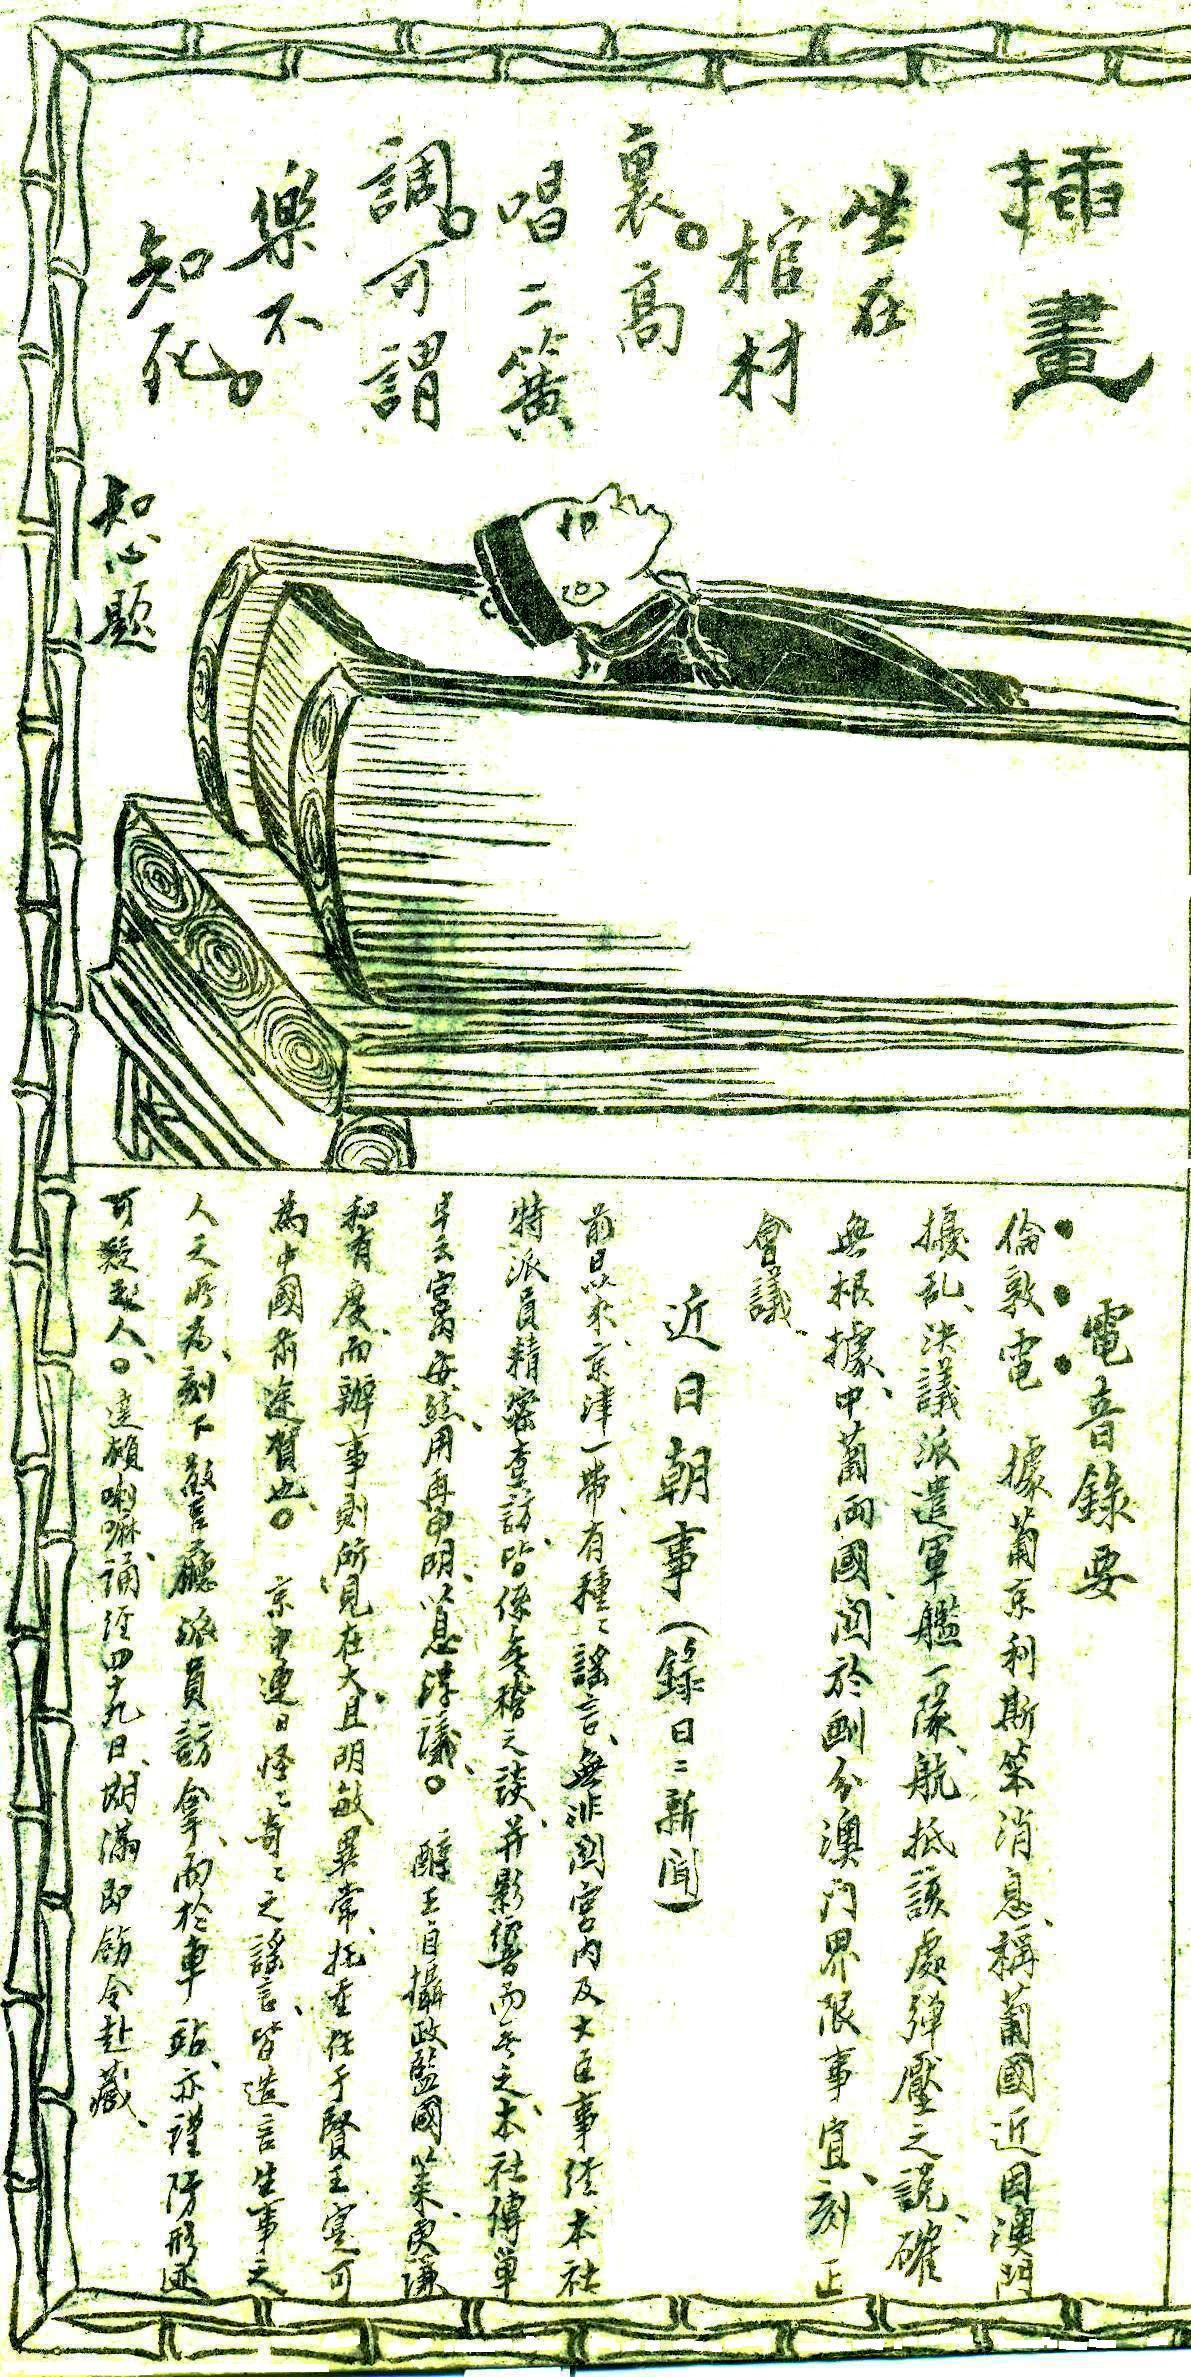 插畫
坐在
棺材
裏。高
唱二簧
調。可謂
樂不
知死。
知心題
電音錄要
倫敦電 據葡京利斯笨消息、稱葡國近因澳門
擾乱、决議派遣軍艦一隊、航抵該處彈壓之說、確
無根據、中葡兩國、関於劃分澳門界限事宜、刻正
會議、
近日朝事(錄日〻新聞)
前日以來、京津一帶、有種〻謠言、無非関宮內及大臣事経本社
特派員精密查訪、皆係無稽之談、并影響而無之、本社傳單
早云宮內安然、用再申明、以息浮議、。 醇王自攝政監國以來、更謙
和有度、而辦事則所見在大、且明敏異常、托重任于賢王、寔可
為中國前途賀也、。 京中連日怪〻奇〻之謠言、皆造言生事之
人之所為、刻下警廳派員訪拿、而於車站、亦謹防形迹
可疑之人、。達賴喇嘛、誦经四十九日、期滿即飭令赴藏、